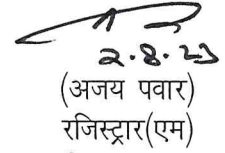 2.8.23
(अजय पवार)
रजिस्ट्रार(एम)